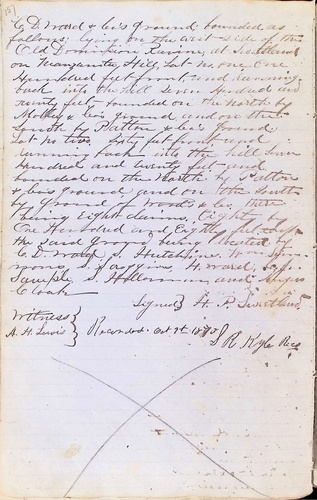 C D Ward & Co's ground bounded as
follows lying on the west side of the
Old Dominion Ravine, at
on Manzanita Hill, Lot no one One
Hundred feet front, and running
back into the hill Seven Hundred and
twenty feet bounded on the North by
& Co's ground and on the
South by Patton & Co's ground
Lot no two, Sixty feet front and
running back into the hill Seven
Hundred and twenty feet and
bounded on the North by Patton
& Co's ground and on the South
by Ground of Woods & Co, there
being Eight claims, Eighty by
One Hundred and Eighty feet
the Said Ground being located by
C. D. Ward S. Hutchins
S. Jaggins, H. Ward,
Sample S. Holloman and
Cloak
Signed } H. P. Sweetland
Witness }
A. H. Lewis }
Recorded Oct 9th
S R Kyle Rec